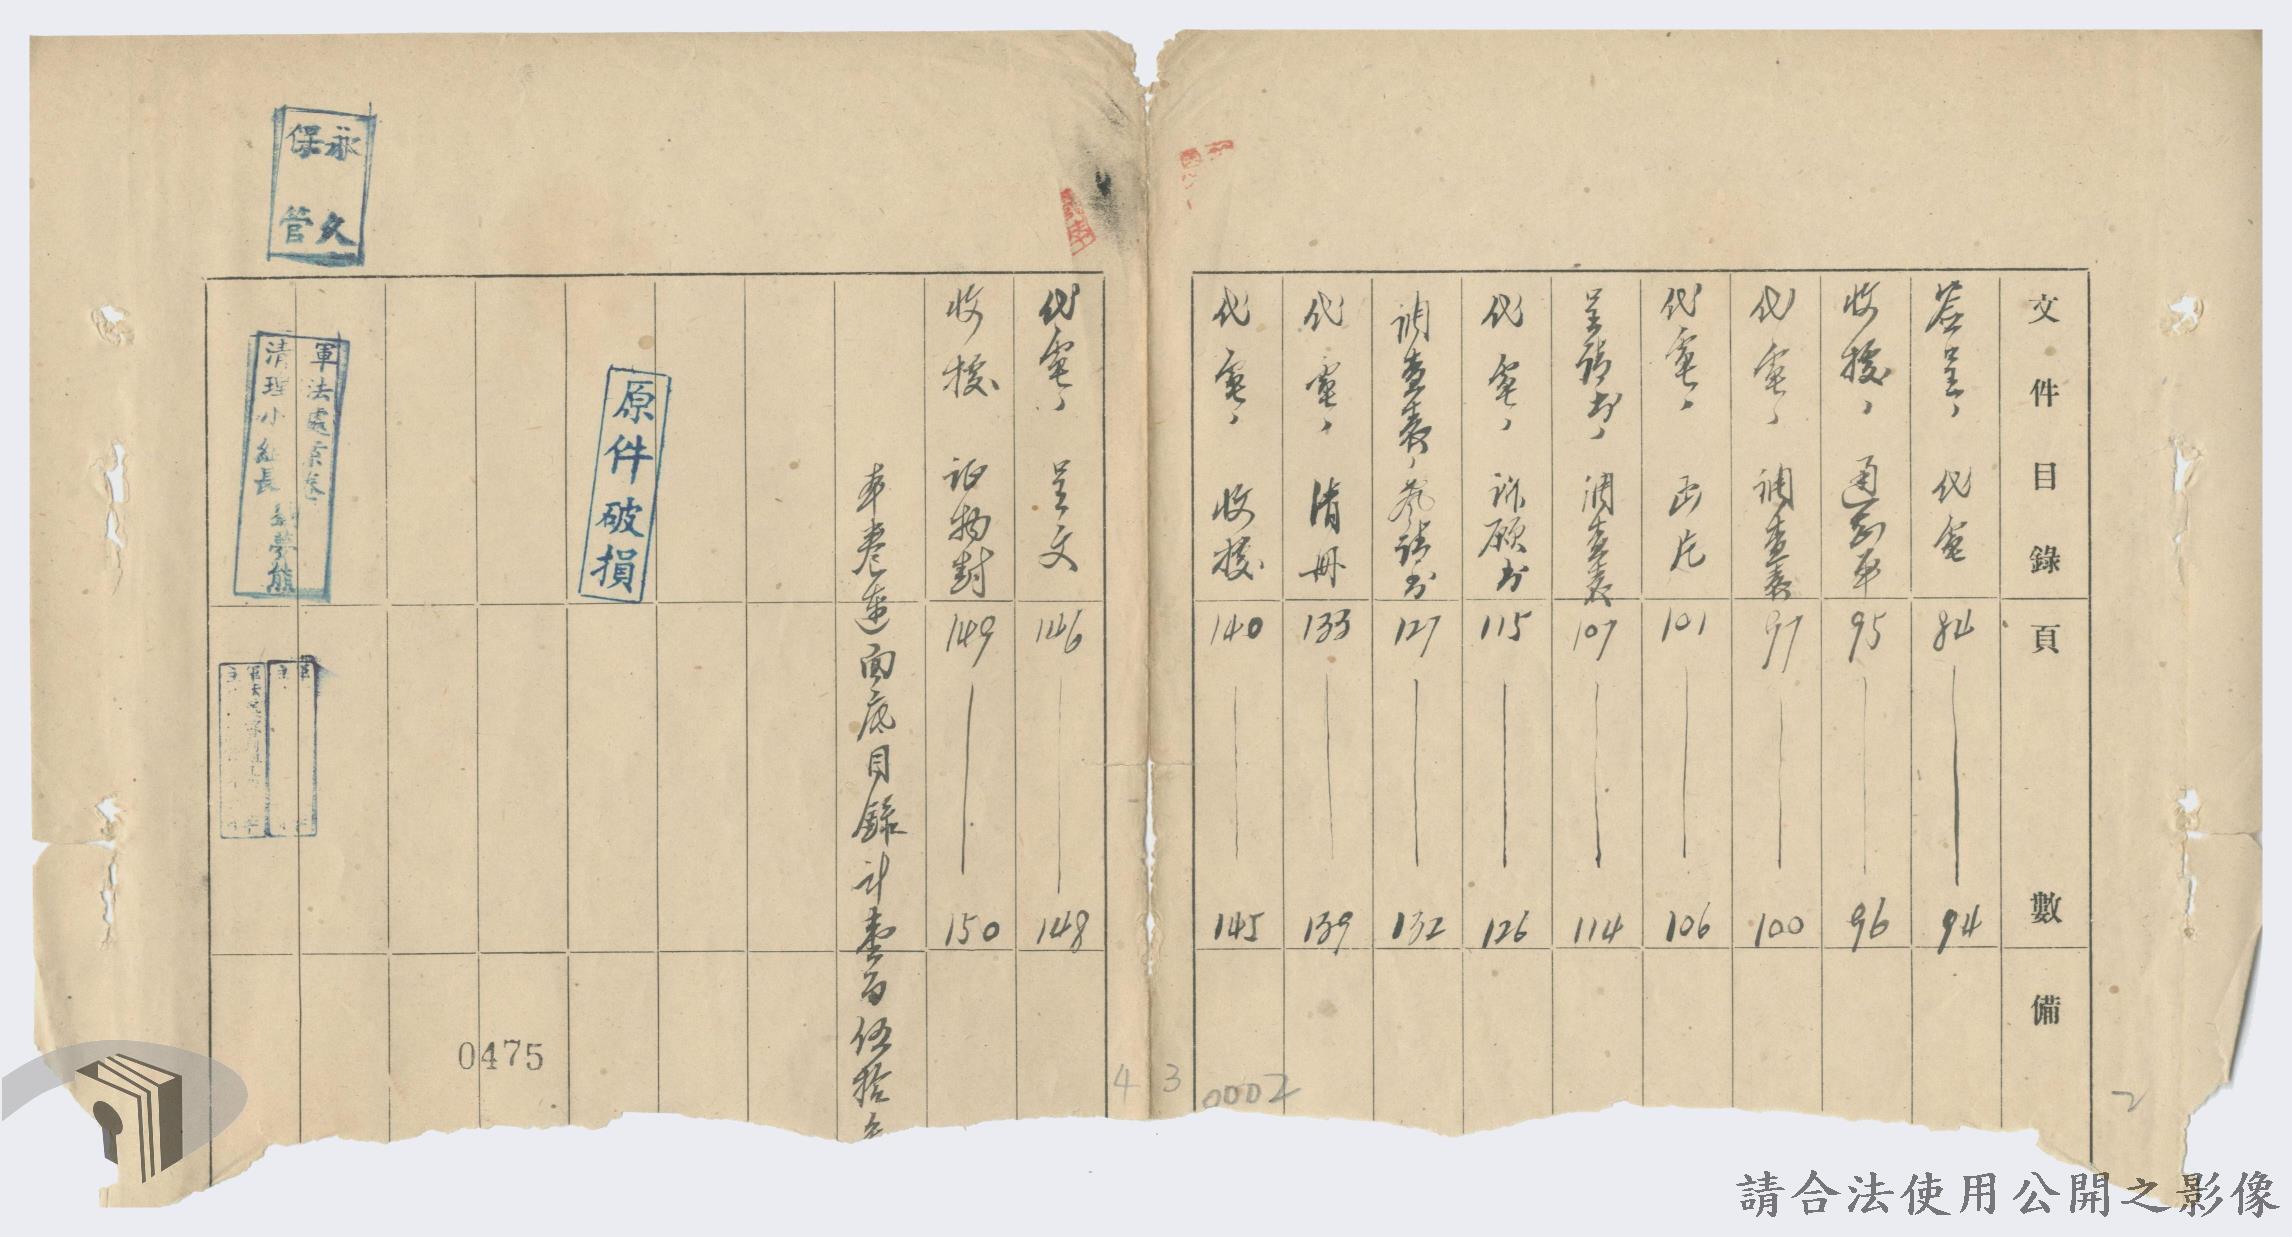 文件目錄 頁數 備
簽呈、代電 84 94
收據、通知單 95 96
代電、調查表 97 100
代電、函片 101 106
呈請書、調查表 107 114
代電、訴願書 115 126
調查表、聲請書 127 132
代電、清冊 133 139
代電、收據 140 145
代電、呈文 146 148
收據 證物封 149 150
本卷連面底目錄計壹百伍拾
永久
保管
原件破損
軍法處原卷
清理小組長 劉夢熊
0475
4
3
0002
2
請合法使用公開之影像